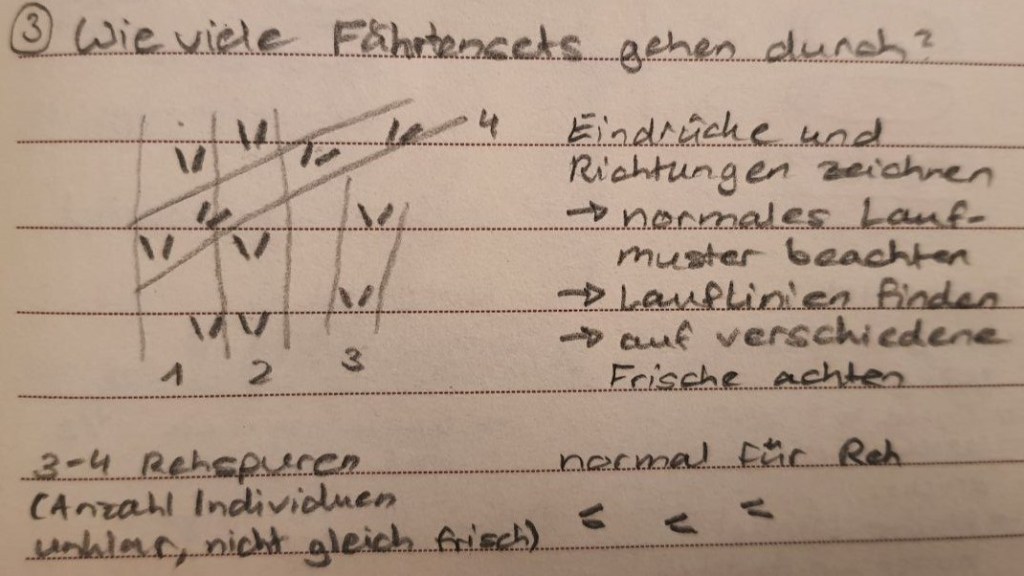 ③ Wie viele Fährtensets gehen durch?
4
1 2 3
Eindrücke und
Richtungen zeichnen
→ normales Lauf-
muster beachten
→ Lauflinien finden
→ auf verschiedene
Frische achten
3-4 Rehspuren
(Anzahl Individuen
unklar, nicht gleich frisch)
normal für Reh